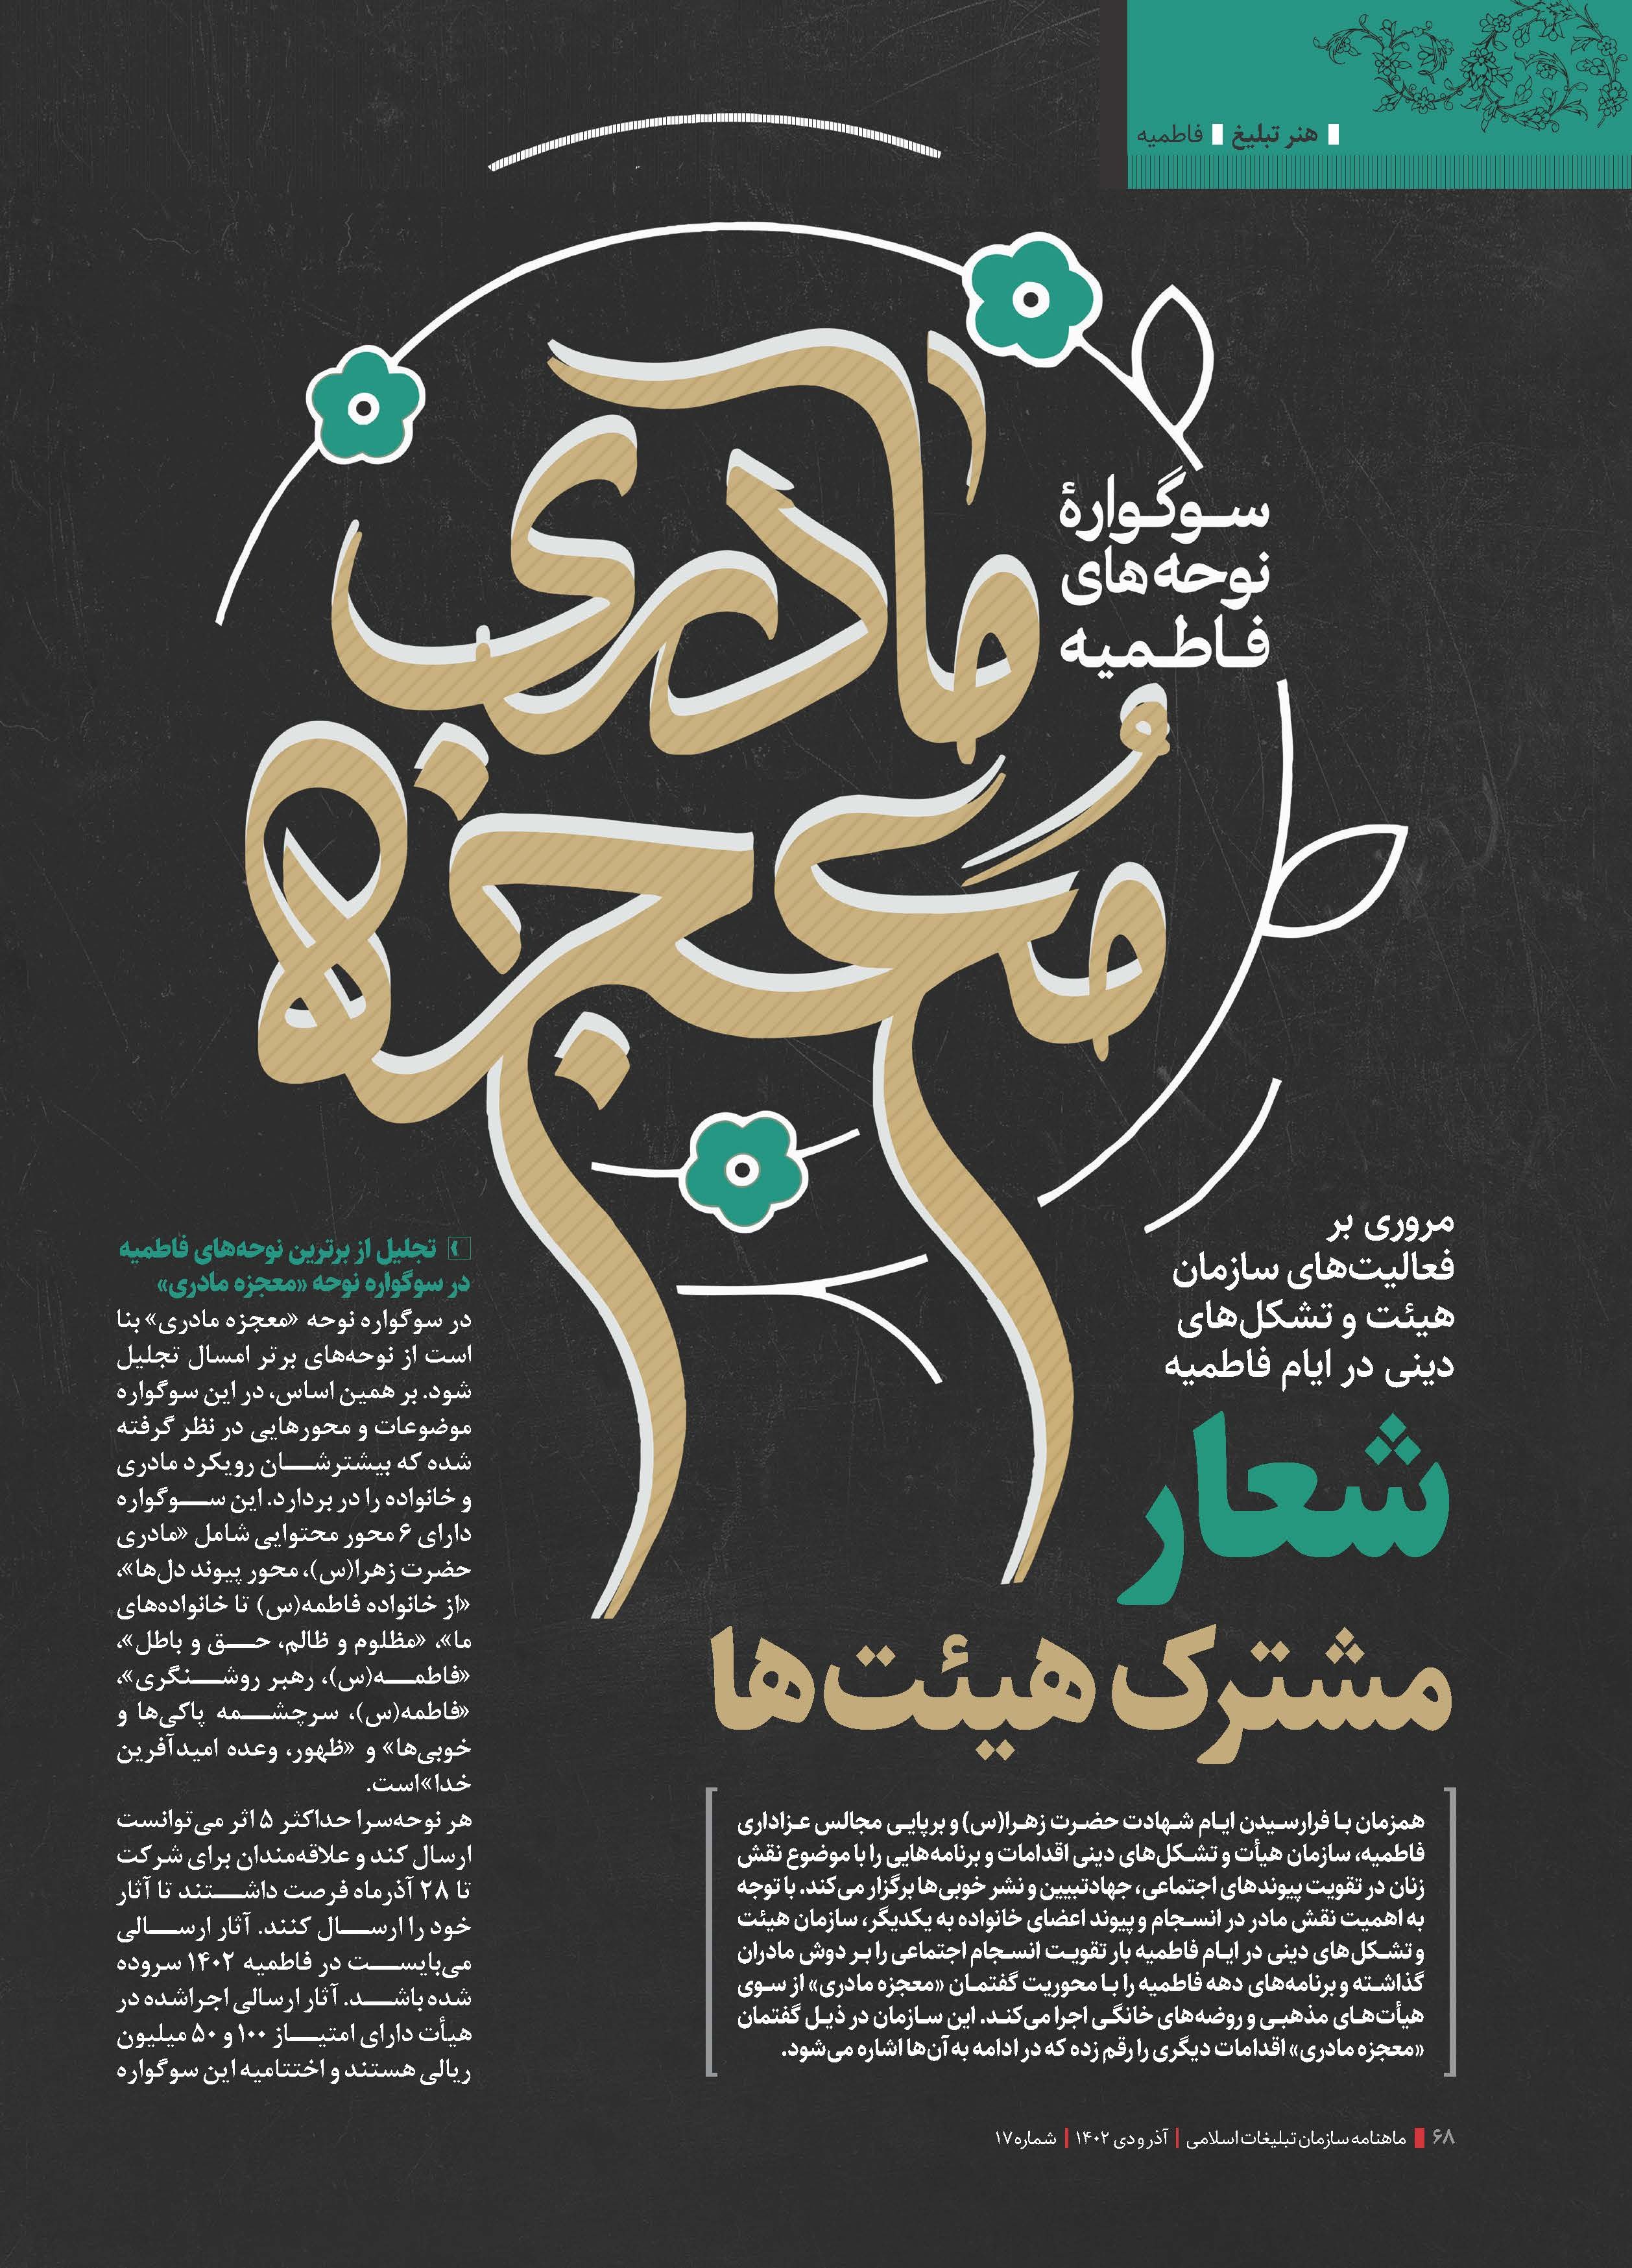 هنر تبلیغ فاطمیه
سوگوارهٔ
نوحه‌های
فاطمیه
معجزه مادری
مروری بر
فعالیت‌های سازمان
هیئت و تشکل‌های
دینی در ایام فاطمیه
شعار
مشترک هیئت‌ها
همزمان با فرارسیدن ایام شهادت حضرت زهرا(س) و برپایی مجالس عزاداری
فاطمیه، سازمان هیأت و تشکل‌های دینی اقدامات و برنامه‌هایی را با موضوع نقش
زنان در تقویت پیوندهای اجتماعی، جهاد تبیین و نشر خوبی‌ها برگزار می‌کند. با توجه
به اهمیت نقش مادر در انسجام و پیوند اعضای خانواده به یکدیگر، سازمان هیئت
و تشکل‌های دینی در ایام فاطمیه بار تقویت انسجام اجتماعی را بر دوش مادران
گذاشته و برنامه‌های دهه فاطمیه را با محوریت گفتمان «معجزه مادری» از سوی
هیأت‌های مذهبی و روضه‌های خانگی اجرا می‌کند. این سازمان در ذیل گفتمان
«معجزه مادری» اقدامات دیگری را رقم زده که در ادامه به آن‌ها اشاره می‌شود.
تجلیل از برترین نوحه‌های فاطمیه
در سوگواره نوحه «معجزه مادری»
در سوگواره نوحه «معجزه مادری» بنا
است از نوحه‌های برتر امسال تجلیل
شود. بر همین اساس، در این سوگواره
موضوعات و محورهایی در نظر گرفته
شده که بیشترشان رویکرد مادری
و خانواده را در بردارد. این سوگواره
دارای ۶ محور محتوایی شامل «مادری
حضرت زهرا(س)، محور پیوند دل‌ها»،
«از خانواده فاطمه(س) تا خانواده‌های
ما»، «مظلوم و ظالم، حق و باطل»،
«فاطمه(س)، رهبر روشنگری»،
«فاطمه(س)، سرچشمه پاکی‌ها و
خوبی‌ها» و «ظهور، وعده امیدآفرین
خدا» است.
هر نوحه‌سرا حداکثر ۵ اثر می‌توانست
ارسال کند و علاقه‌مندان برای شرکت
تا ۲۸ آذرماه فرصت داشتند تا آثار
خود را ارسال کنند. آثار ارسالی
می‌بایست در فاطمیه ۱۴۰۲ سروده
شده باشد. آثار ارسالی اجراشده در
هیأت دارای امتیاز ۱۰۰ و ۵۰ میلیون
ریالی هستند و اختتامیه این سوگواره
۶۸ ماهنامه سازمان تبلیغات اسلامی | آذر و دی ۱۴۰۲ | شماره ۱۷